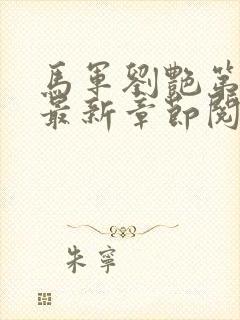 馬軍劉艷第
最新章節閱
朱寧